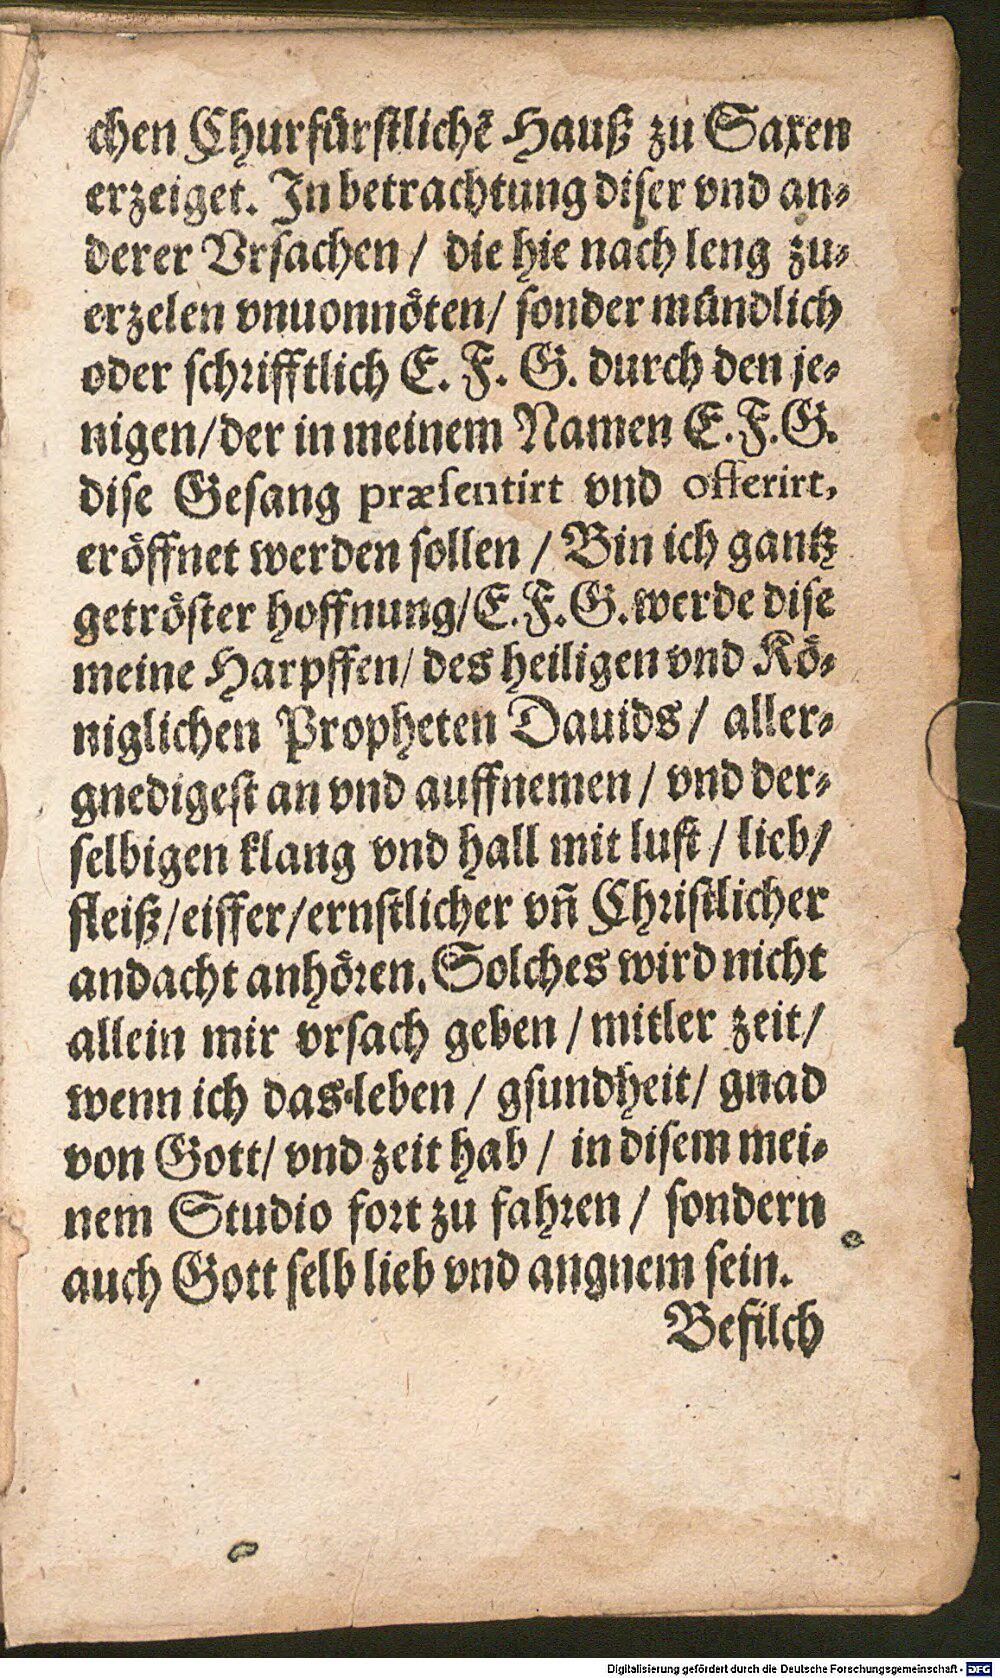 chen Churfürstlichē Hauß zu Saxen
erzeiget. In betrachtung diser vnd an⸗
derer Vrsachen / die hie nach leng zu⸗
erzelen vnuonnöten / sonder mündlich
oder schrifftlich E. F. G. durch den je⸗
nigen / der in meinem Namen E. F. G.
dise Gesang præsentirt vnd offerirt,
eröffnet werden sollen / Bin ich gantz
getröster hoffnung / E. F. G. werde dise
meine Harpffen / des heiligen vnd Kö⸗
niglichen Propheten Dauids / aller⸗
gnedigest an vnd auffnemen / vnd der⸗
selbigen klang vnd hall mit lust / lieb /
fleiß / eiffer / ernstlicher vñ Christlicher
andacht anhören. Solches wird nicht
allein mir vrsach geben / mitler zeit /
wenn ich das leben / gsundheit / gnad
von Gott / vnd zeit hab / in disem mei⸗
nem Studio fort zu fahren / sondern
auch Gott selb lieb vnd angnem sein.
Befilch
Digitalisierung gefördert durch die Deutsche Forschungsgemeinschaft - DFG